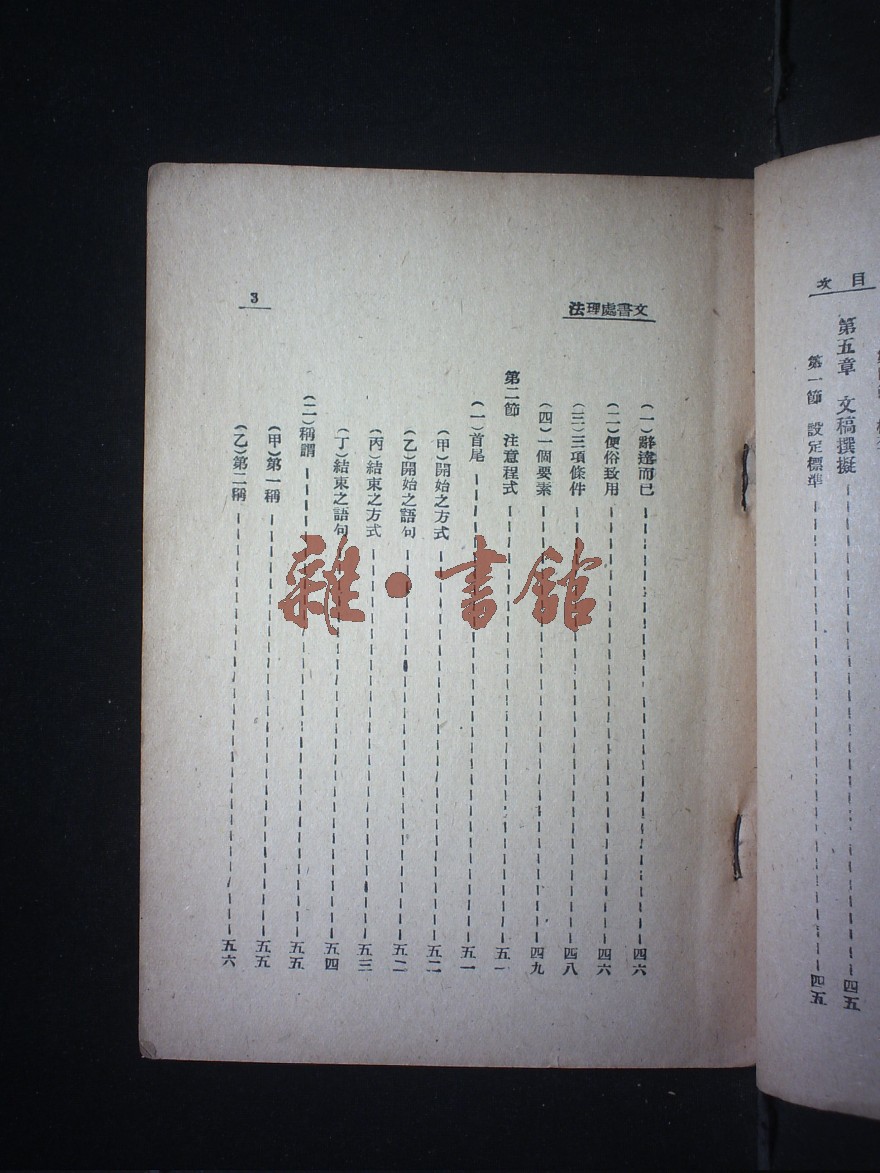 目次
第五章　文稿撰擬 四五
第一節　設定標準 四五
文書處理法
3
（一）辭達而已 四六
（二）便俗致用 四六
（三）三項條件 四八
（四）一個要素 四九
第二節　注意程式 五一
（一）首尾 五一
（甲）開始之方式 五二
（乙）開始之語句 五二
（丙）結束之方式 五三
（丁）結束之語句 五四
（二）稱謂 五五
（甲）第一稱 五五
（乙）第二稱 五六
雜·書館